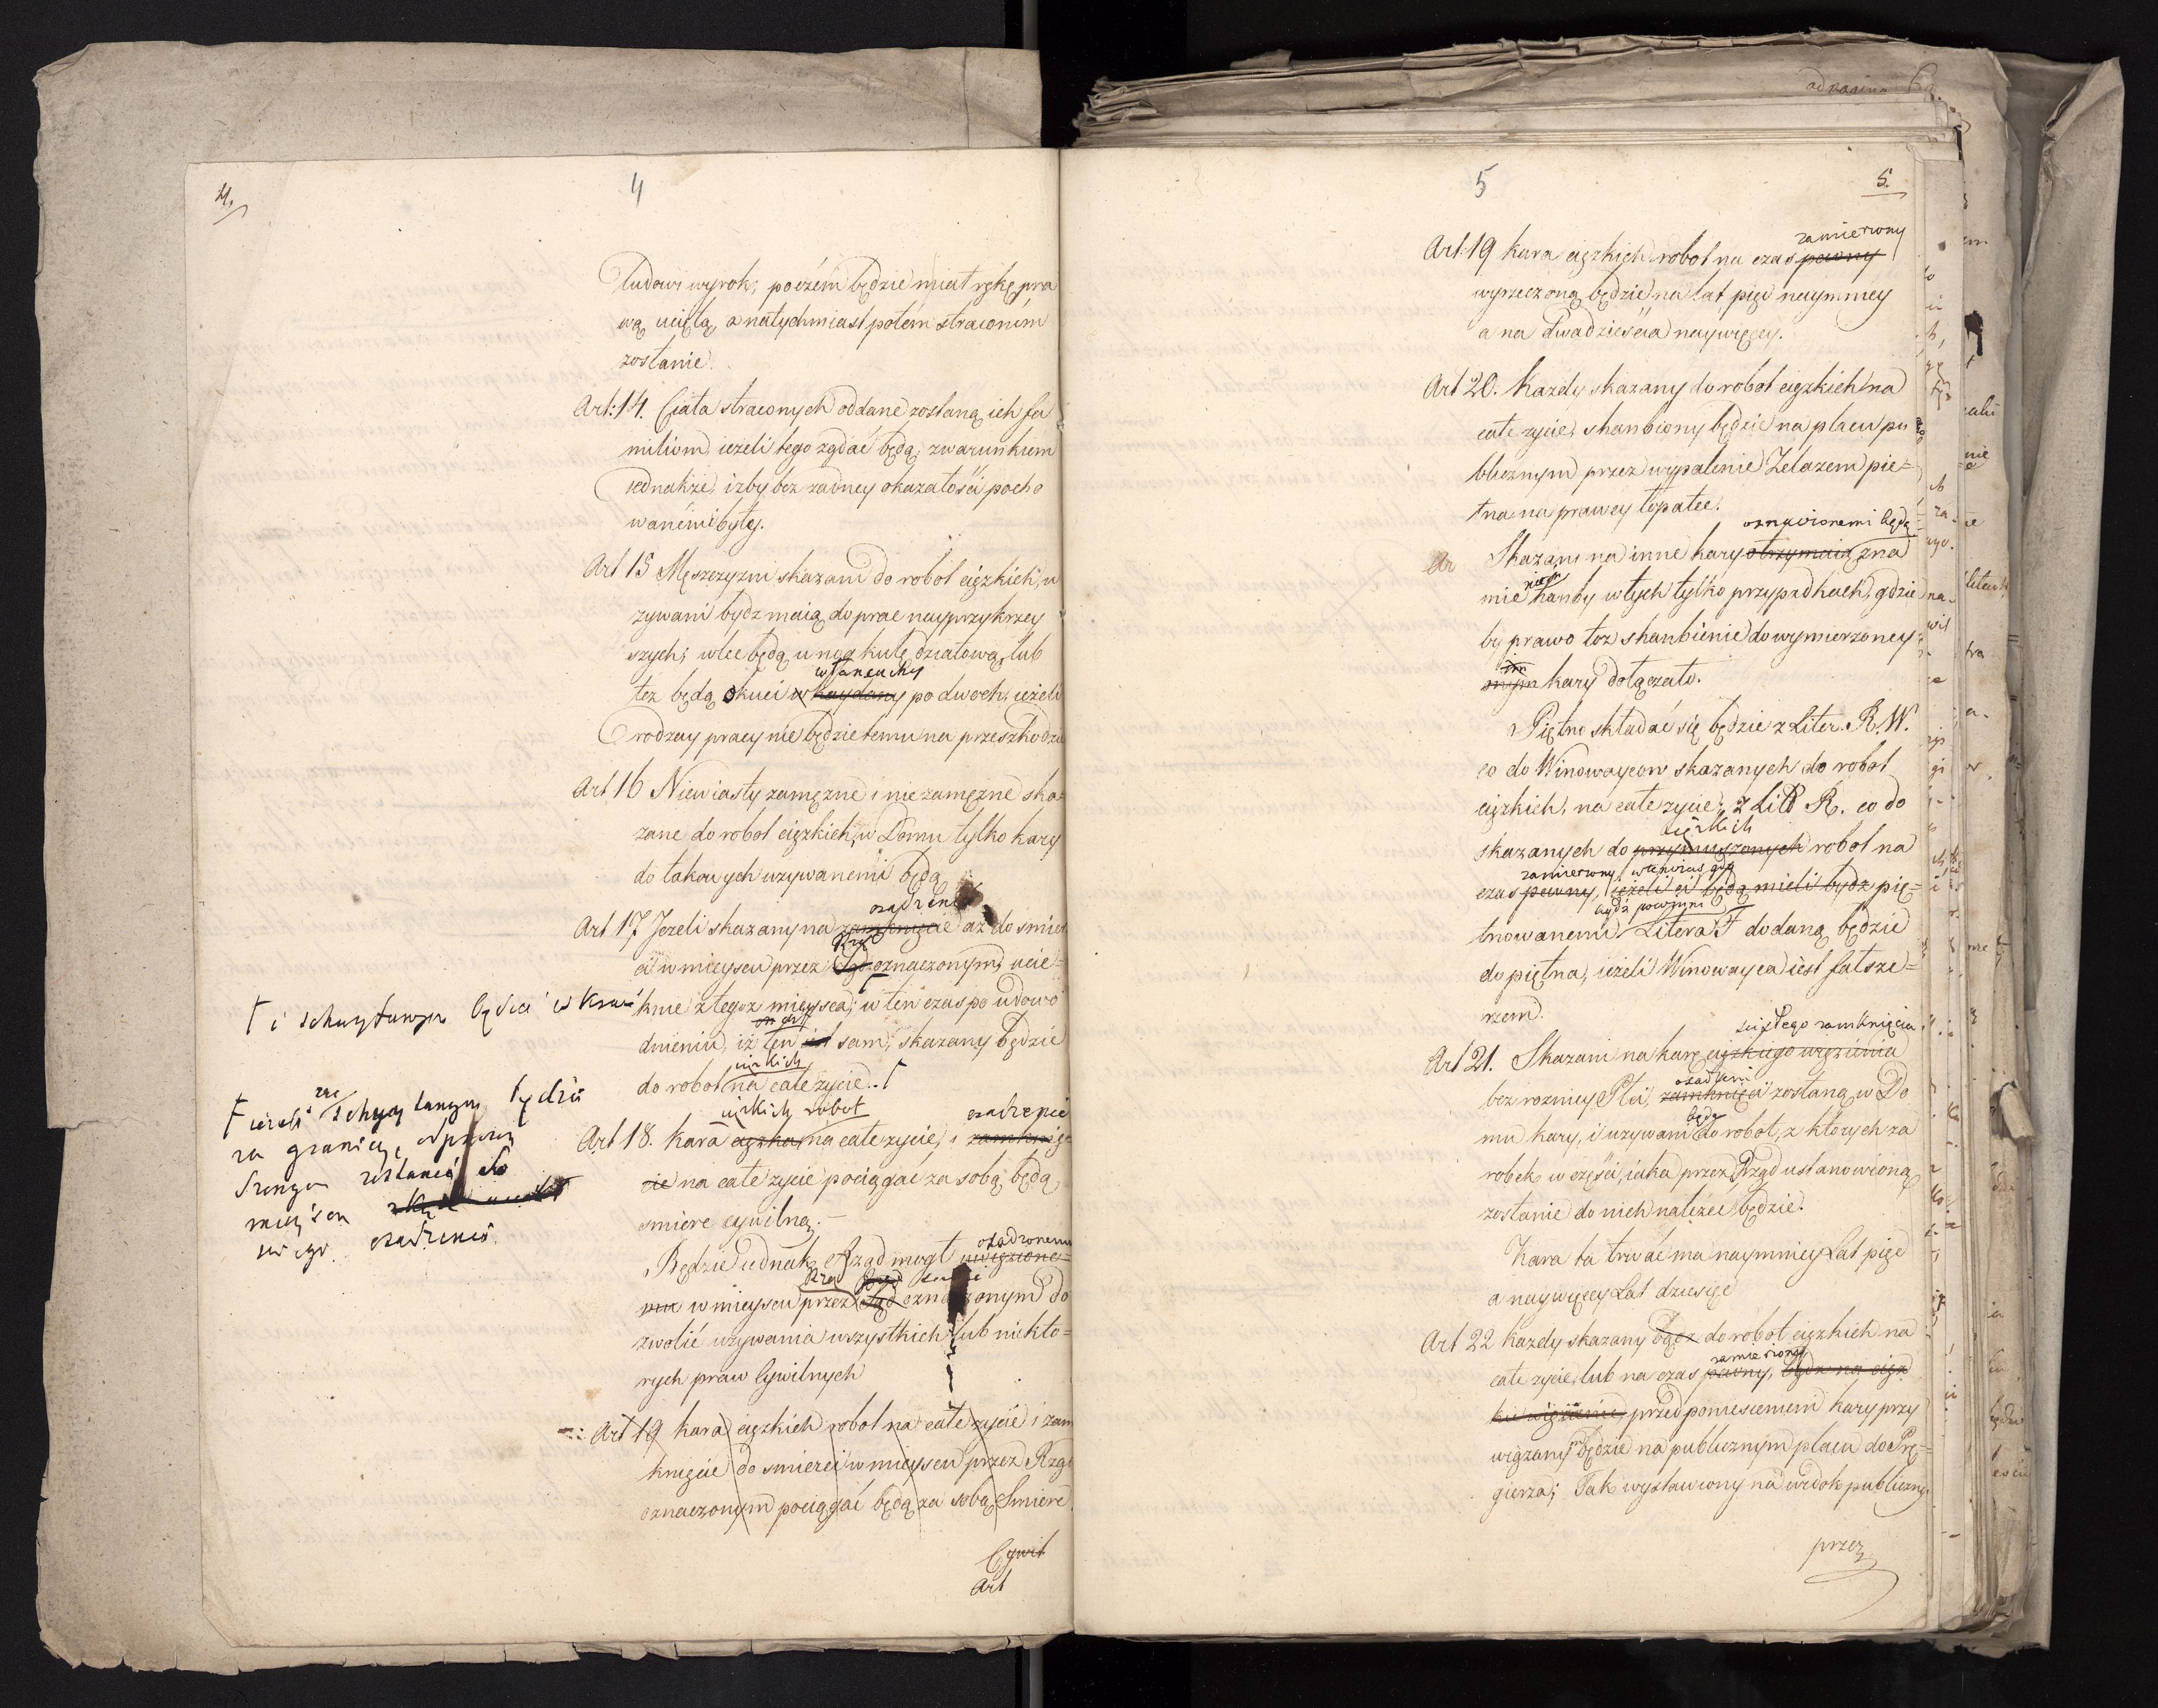 4.
4
Ludowi wyrok; poczém będzie miał rękę pra
wą uciętą, a natychmiast potém straconém
zostanie.
Art: 14. Ciała straconych oddane zostaną ich fa
miliom ieżeli tego żądać będą; z warunkiem
iednakże, iżby bez żadney okazałości pocho
wanémi były.
Art 15 Męszczyzni skazani do robot ciężkich, u
żywani bydź maią do prac nayprzykrzey
szych; wlec będą u nog kulę działową, lub
w łancuchy
też będą okuci w kaydany po dwoch, ieżeli
rodzay pracy nie będzie temu na przeszkodzie
Art 16 Niewiasty zamężne i nie zamężne ska=
zane do robot ciężkich, w Domu tylko kary
do takowych używanemi będą
osadzenie
Art 17 Jeżeli skazany na zamknięcie aż do śmier
Rząd
ci w mieyscu przez Sąd oznaczonym, ucie=
Γ i schwytanym będzie w kraiu
knie z tegoż mieysca; w ten czas po udowo
on iest
dnieniu, iż ten iest sam, skazany będzie
ciężkich
do robot na całe życie. Γ
Γ ieżeli zaś schwytanym będzie
za granicą, odprowa
dzonym zostanie do
mieysca
swego osadzenia.
ciężkich robot osadzenie
Art 18. Kara ciężka na całe życie, i zamknię
cie na całe życie pociągać za sobą będą
śmierć cywilną. —
osadzonemu
Będzie iednak Rząd mogł uwięzione=
Rząd
mu w mieyscu przez Sąd oznaczonym do
zwolić używania wszystkich lub niekto=
rych praw Cywilnych
Art 19 Kara ciężkich robot na całe życie i zam
knięcie do śmierci w mieyscu przez Rząd
oznaczonym pociągać będą za sobą Śmierć
Cywil
Art
5
5.
zamierzony
Art: 19 Kara ciężkich robot na czas pewny
wyrzeczoną będzie na lat pięć naymniey
a na dwadzieścia naywięcey.
Art 20. Każdy skazany do robot ciężkich na
całe życie, shańbiony będzie na placu pu
blicznym przez wypalenie Żelazem pię=
tna na prawey łopatce.
oznaczonemi będą
Ar Skazani na inne kary otrzymaią zna
niem
mie hańby w tych tylko przypadkach, gdzie
by prawo toż shańbienie do wymierzoney
im
onym kary dołączało.
Piętno składać się będzie z Liter. R. W.
co do Winowaycow skazanych do robot
ciężkich, na całe życie; z Lit R. co do
ciężkich
skazanych do przymuszonych robot na
zamierzony, wtenczas gdy
czas pewny, ieżeli ci będą mieli bydź pię=
bydź powinni
tnowanemi. Litera F dodaną będzie
do piętna, ieżeli Winowayca iest fałsze=
rzem.
ścisłego zamknięcia
Art 21. Skazani na karę ciężkiego więzienia
osadzeni
bez rożnicy Płci, zamknięci zostaną w Do
będą
mu kary, i używani do robot, z ktorych za
robek w części, iaka przez Rząd ustanowioną
zostanie do nich należeć będzie.
Kara ta trwać ma naymniey Lat pięć
a naywięcey Lat dziesięć
Art 22 Każdy skazany bądź do robot ciężkich na
zamierzony
całe życie, lub na czas pewny, bądź na cięż
kie więzienie, przed poniesieniem kary przy
wiązany będzie na publicznym placu do Prę=
gierza; Tak wystawiony na widok publiczny
przez